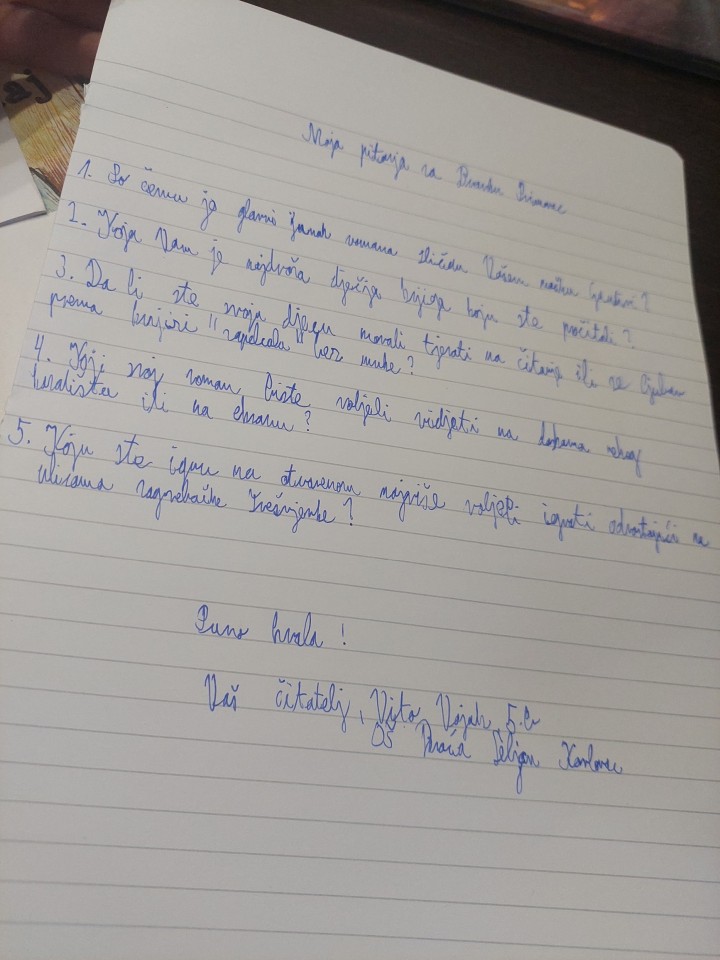 Moja pitanja za Primorac
1. Po čemu je glavni junak romana sličan Vašem
2. Koja Vam je najdraža dječja knjiga koju ste pročitali?
3. Da li ste svoju djecu morali tjerati na čitanje ili se ljubav
prema knjizi "zapalila" bez muke?
4. Koji svoj roman biste voljeli vidjeti na daskama nekog
kazališta ili na ekranu?
5. Koju ste igru na otvorenom najviše voljeli igrati odrastajući na
ulicama zagrebačke Trešnjevke?
Puno hvala!
Vaš čitatelj, Vito 5.
OŠ Braća Seljan Karlovac
aj